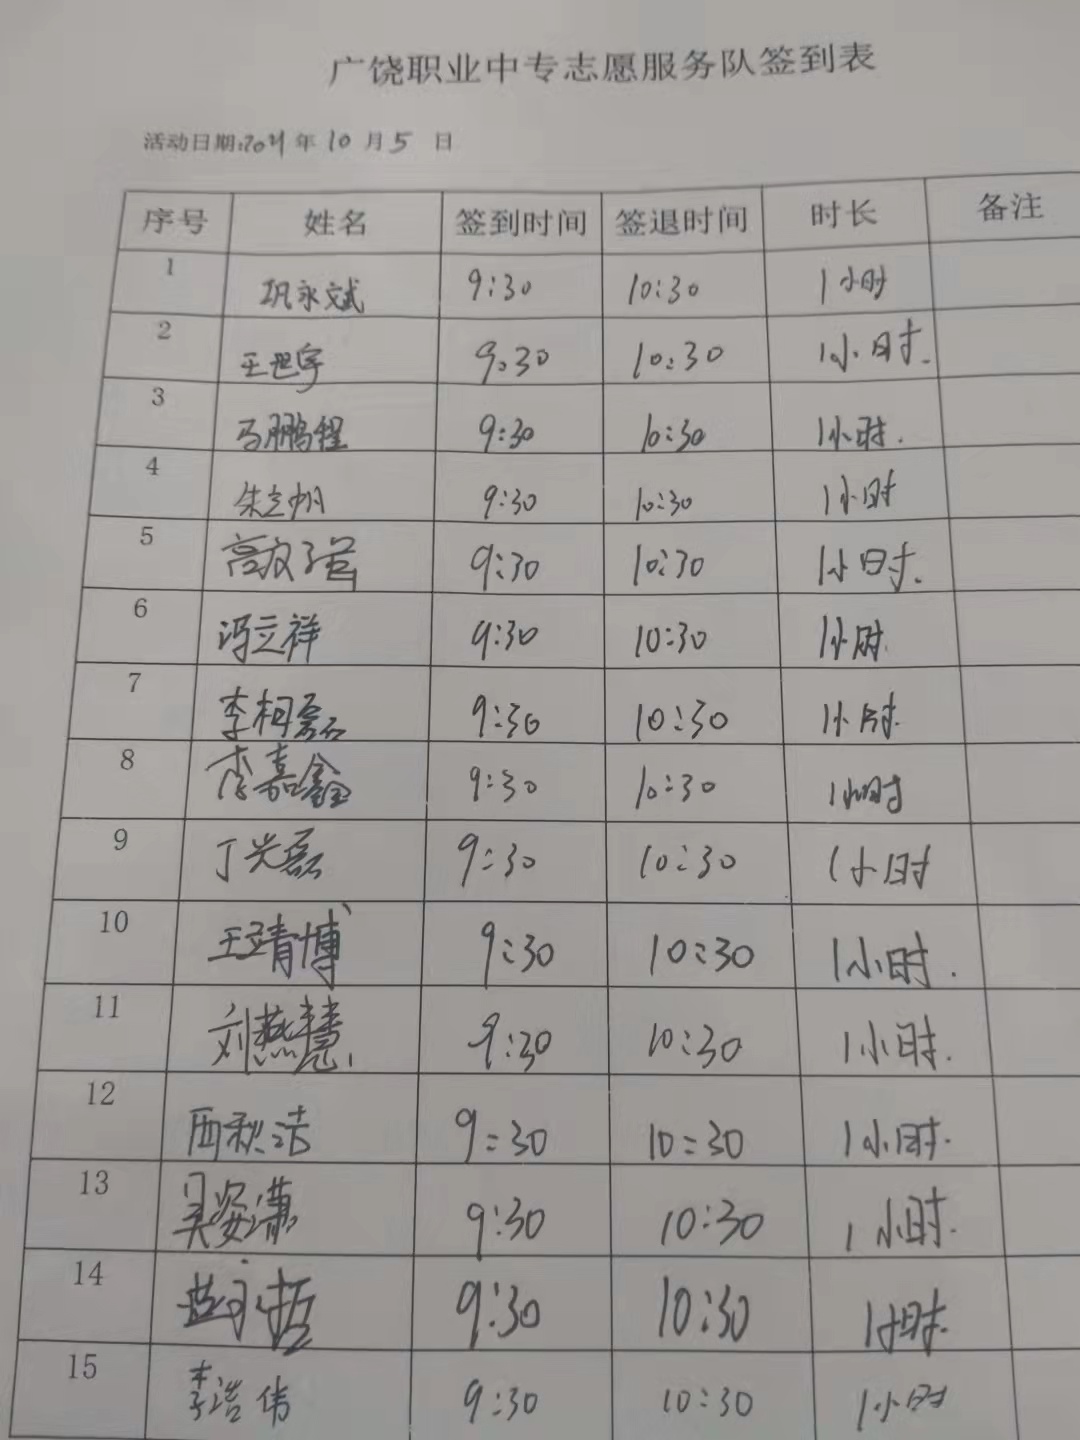 广饶职业中专志愿服务队签到表
活动日期:2021年10月5日
序号 姓名 签到时间 签退时间 时长 备注
1 巩永斌 9:30 10:30 1小时
2 王世宇 9:30 10:30 1小时.
3 马鹏程 9:30 10:30 1小时.
4 朱志帅 9:30 10:30 1小时
5 高文 9:30 10:30 1小时.
6 冯立祥 9:30 10:30 1小时.
7 李柯磊 9:30 10:30 1小时.
8 李嘉鑫 9:30 10:30 1小时
9 丁兴磊 9:30 10:30 1小时
10 王靖博 9:30 10:30 1小时.
11 刘燕慧 9:30 10:30 1小时.
12 秋洁 9:30 10:30 1小时.
13 吴姿潇 9:30 10:30 1小时.
14 哲 9:30 10:30 1小时.
15 李浩伟 9:30 10:30 1小时